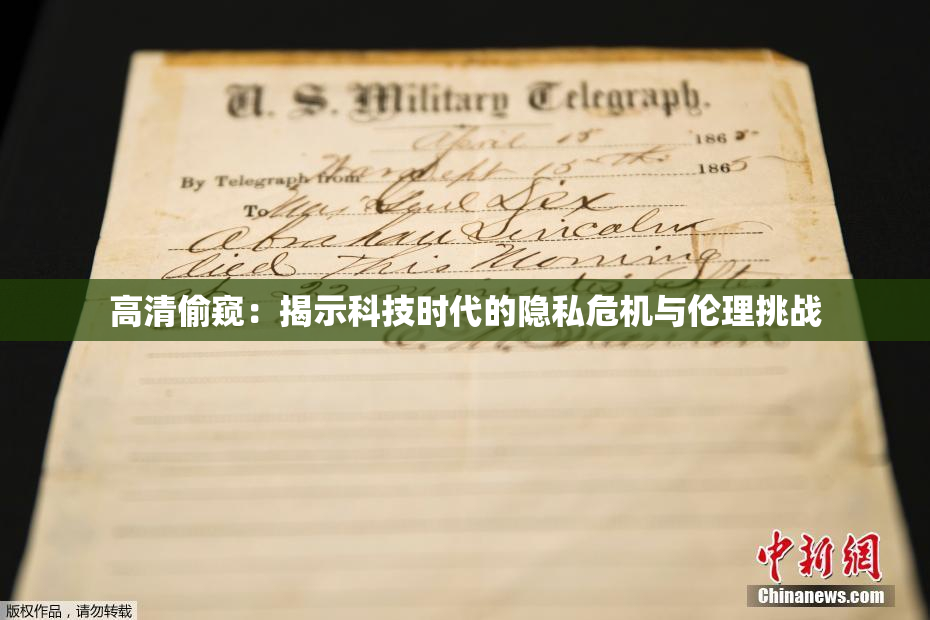 U. S. Military Telegraph.
April 15 1865
By Telegraph from War Dept 15th 1865
To Maj Genl Dix
Abraham Lincoln
died This Morning
22 minutes after
高清偷窥：揭示科技时代的隐私危机与伦理挑战
E. M. Stanton
中新网
Chinanews.com
版权作品，请勿转载